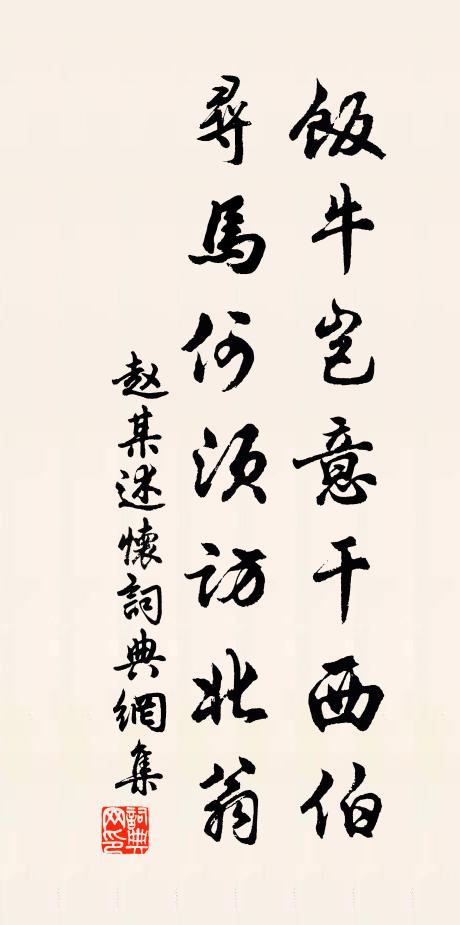 飯牛岂意干西伯
尋馬何須訪北翁
赵某述懷詞典網集
詞典网印